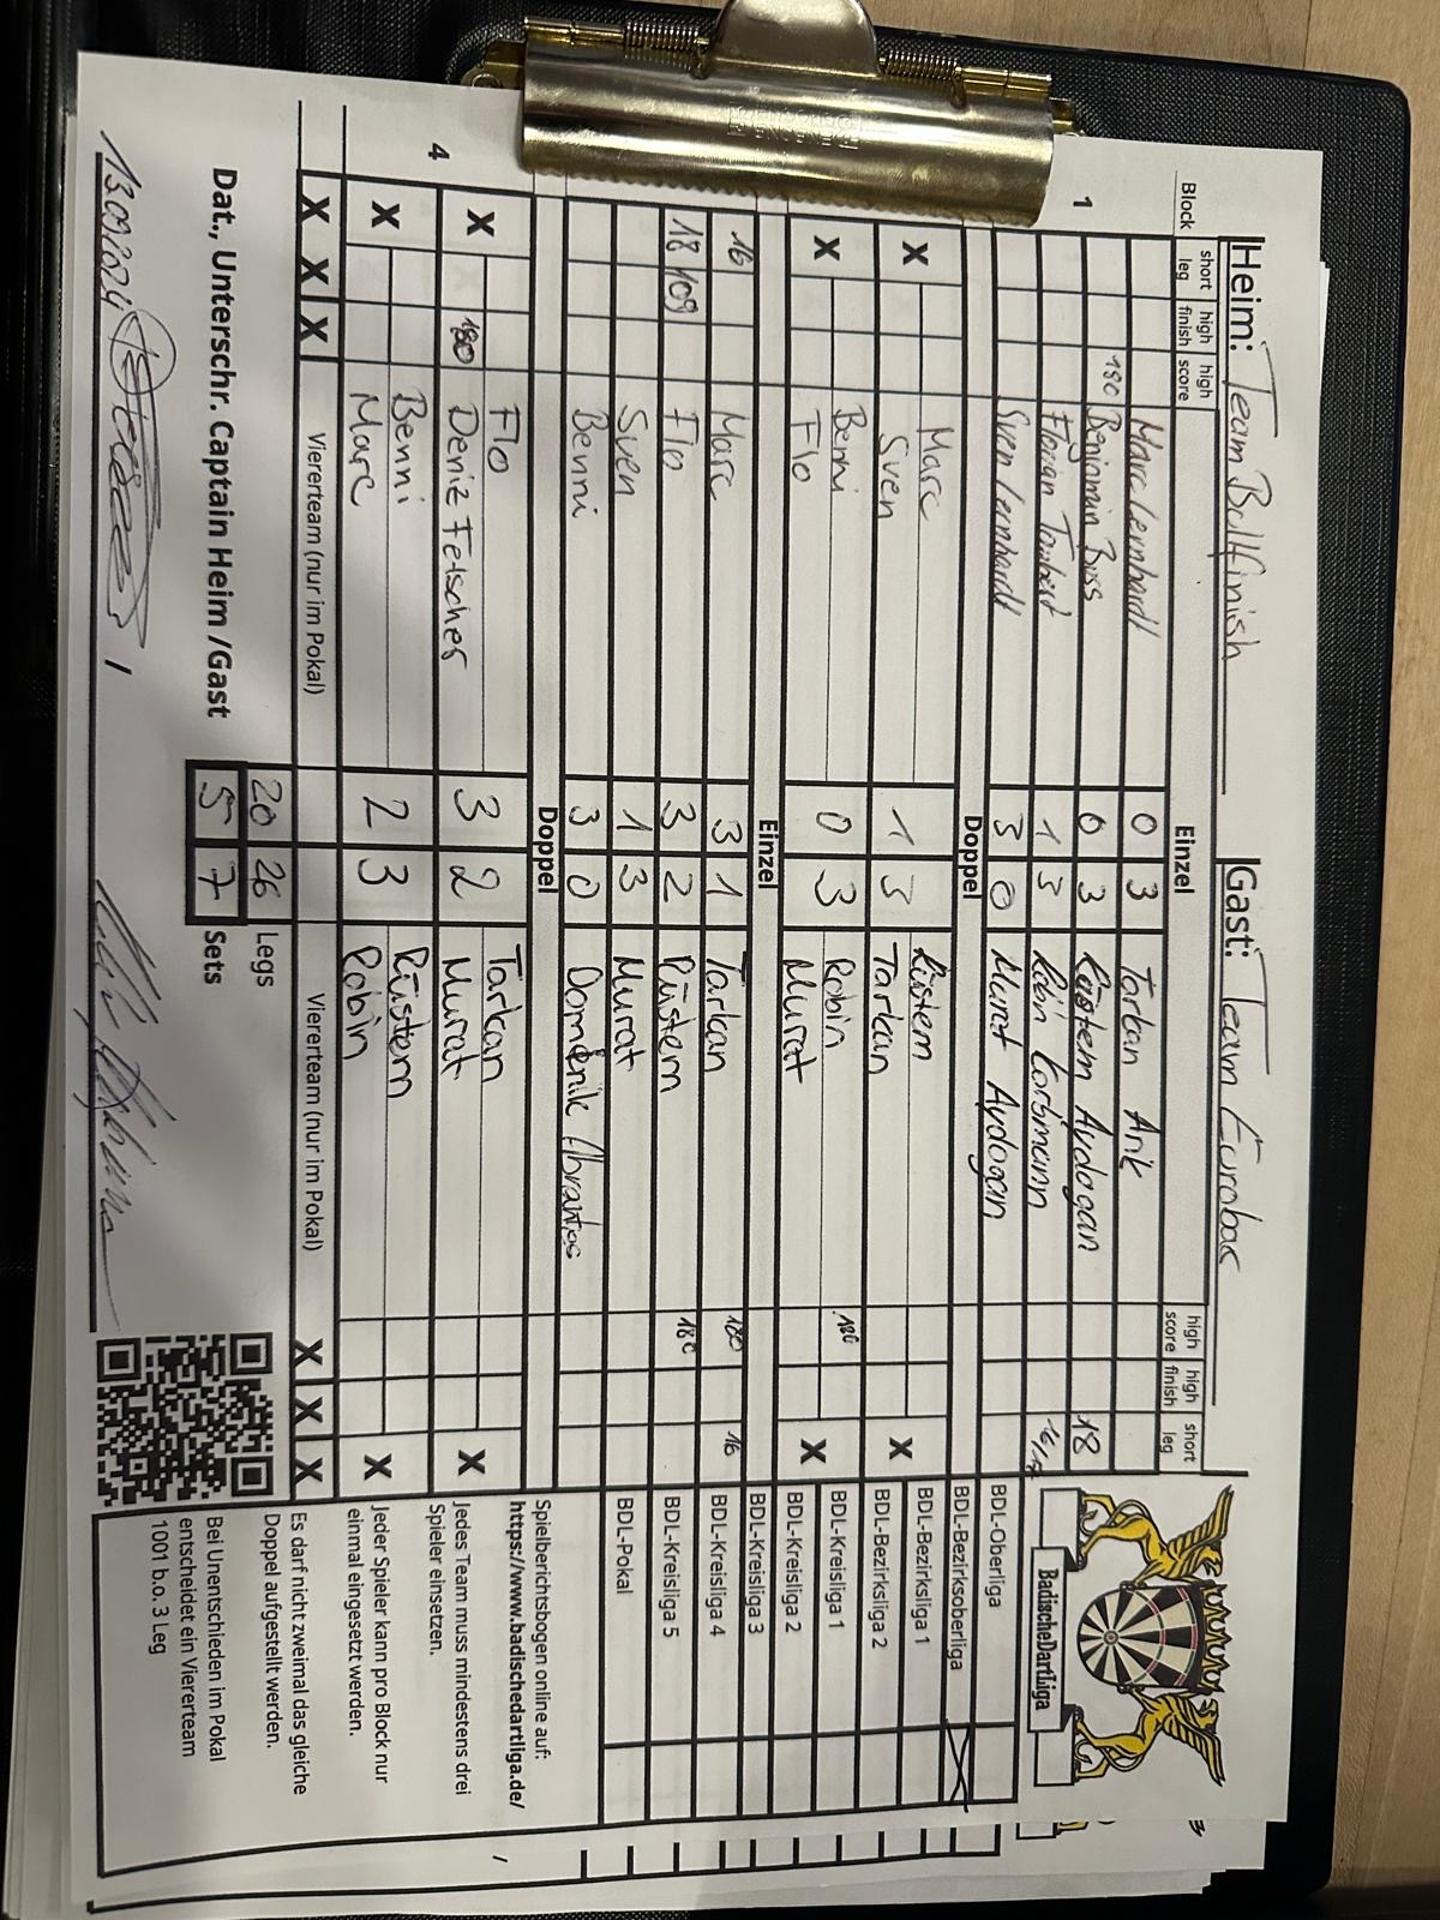 Heim: Team Bullfinish Gast: Team Eurobac
Block short leg high finish high score Einzel high score high finish short leg
Marc Lernhardt 0 3 Tarkan Arik
1 180 Benjamin Buss 0 3 Rüstem Aydogan 18
Florian 1 3 Robin Korbmann
Sven Lernhardt 3 0 Murat Aydogan
Doppel
X Marc 1 3 Rüstem X
Sven Tarkan
X Benni 0 3 Robin 180 X
Flo Murat
Einzel
16 Marc 3 1 Tarkan 180 16
18 109 Flo 3 2 Rüstem 180
Sven 1 3 Murat
Benni 3 0 Domenik Abrantes
Doppel
4 X Flo 3 2 Tarkan X
180 Deniz Fetscher Murat
X Benni 2 3 Rüstem X
Marc Robin
X X X Viererteam (nur im Pokal) Viererteam (nur im Pokal) X X X
20 26 Legs
Dat., Unterschr. Captain Heim /Gast 5 7 Sets
/
BadischeDartLiga
BDL-Oberliga
BDL-Bezirksoberliga X
BDL-Bezirksliga 1
BDL-Bezirksliga 2
BDL-Kreisliga 1
BDL-Kreisliga 2
BDL-Kreisliga 3
BDL-Kreisliga 4
BDL-Kreisliga 5
BDL-Pokal
Spielberichtsbogen online auf:
https://www.badischedartliga.de/
Jedes Team muss mindestens drei
Spieler einsetzen.
Jeder Spieler kann pro Block nur
einmal eingesetzt werden.
Es darf nicht zweimal das gleiche
Doppel aufgestellt werden.
Bei Unentschieden im Pokal
entscheidet ein Viererteam
1001 b.o. 3 Leg